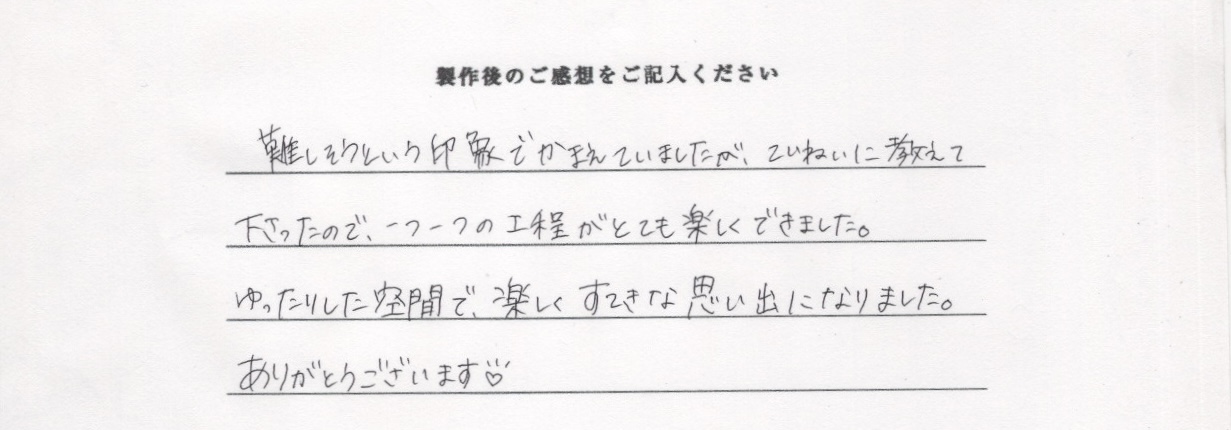 製作後のご感想をご記入ください
難しそうという印象でかまえていましたが、ていねいに教えて
下さったので、一つ一つの工程がとても楽しくできました。
ゆったりした空間で、楽しくすてきな思い出になりました。
ありがとうございます♡